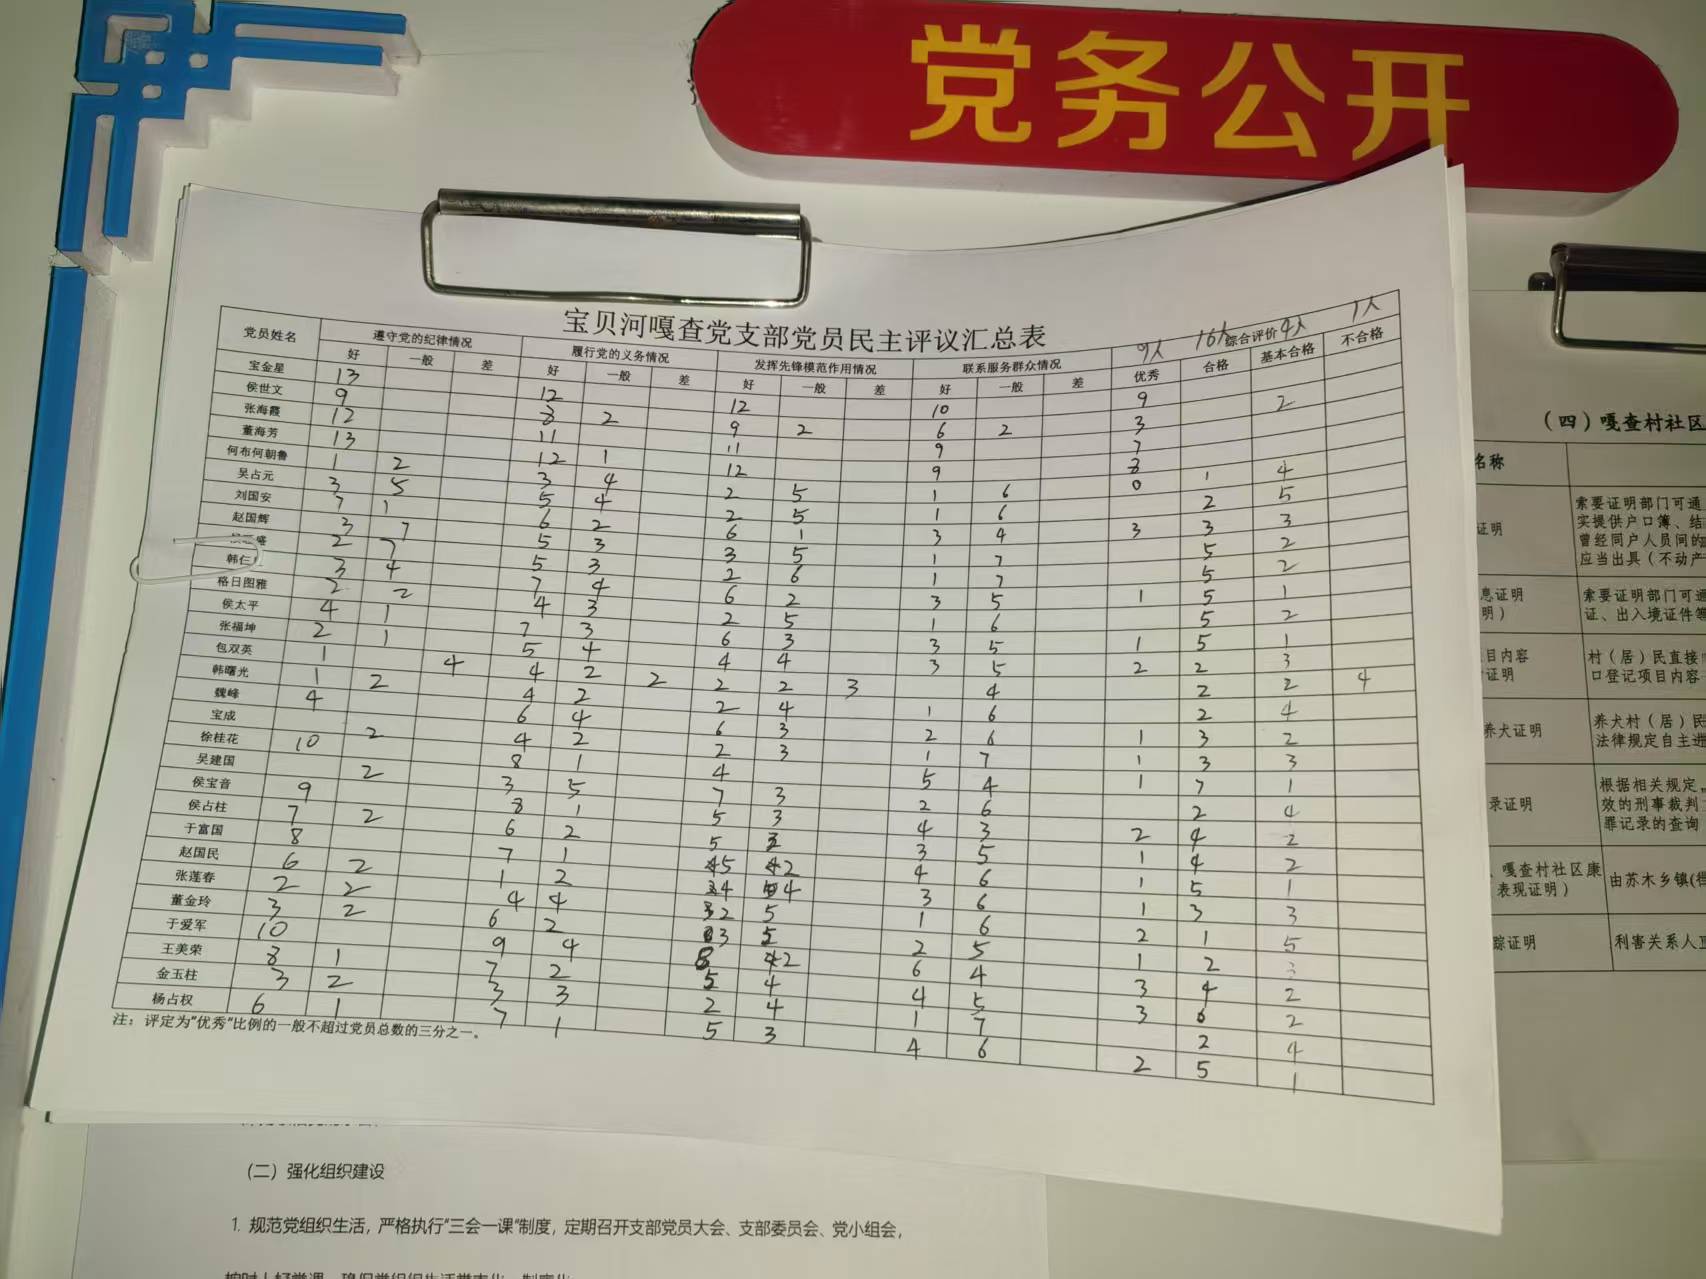 党务公开
宝贝河嘎查党支部党员民主评议汇总表
9人 16人 4人 1人
党员姓名 遵守党的纪律情况 履行党的义务情况 发挥先锋模范作用情况 联系服务群众情况 综合评价
好 一般 差 好 一般 差 好 一般 差 好 一般 差 优秀 合格 基本合格 不合格
宝金星 13 12 12 10 9 2
侯世文 9 8 2 9 2 6 2 3
张海霞 12 11 11 9 7
董海芳 13 12 1 12 9 8
何布何朝鲁 1 2 3 4 2 5 1 6 0 1 4
吴占元 3 5 5 4 2 5 1 6 2 5
刘国安 7 1 6 2 6 1 3 4 3 3 3
赵国辉 3 7 5 3 3 5 1 7 5 2
2 7 5 3 2 6 1 7 5 2
韩仁 3 4 7 4 6 2 3 5 1 5 1
格日图雅 2 2 4 3 2 5 1 6 5 2
侯太平 4 1 7 3 6 3 3 5 1 5 1
张福坤 2 1 5 4 4 4 3 5 2 2 3
包双英 1 4 4 2 2 2 2 3 4 2 2 4
韩曙光 1 2 4 2 2 4 1 6 2 4
魏峰 4 6 4 6 3 2 6 1 3 2
宝成 2 4 2 2 3 1 7 1 3 3
徐桂花 10 8 1 4 5 4 1 7 1
吴建国 2 3 5 7 3 2 6 2 4
侯宝音 9 8 1 5 3 4 3 2 4 2
侯占柱 7 2 6 2 5 3 5 1 4 2
于富国 8 7 1 5 2 4 6 1 5 1
赵国民 6 2 1 2 4 4 3 6 1 3 3
张莲春 2 2 4 4 2 5 1 6 2 1 5
董金玲 3 2 6 2 3 5 2 5 1 2 3
于爱军 10 9 4 8 2 6 4 3 4 2
王美荣 8 1 7 2 5 4 4 5 3 6 2
金玉柱 3 2 3 3 2 4 1 7 2 4
杨占权 6 1 7 1 5 3 4 6 2 5 1
注：评定为"优秀"比例的一般不超过党员总数的三分之一。
（二）强化组织建设
1. 规范党组织生活，严格执行"三会一课"制度，定期召开支部党员大会、支部委员会、党小组会，
（四）嘎查村社区
名称
证明
索要证明部门可通
实提供户口簿、结
曾经同户人员间的
应当出具（不动产
息证明
明）
索要证明部门可通
证、出入境证件等
目内容
证明
村（居）民直接
口登记项目内容
养犬证明
养犬村（居）民
法律规定自主进
录证明
根据相关规定，
效的刑事裁判
罪记录的查询
、嘎查村社区
表现证明）
由苏木乡镇
踪证明
利害关系人